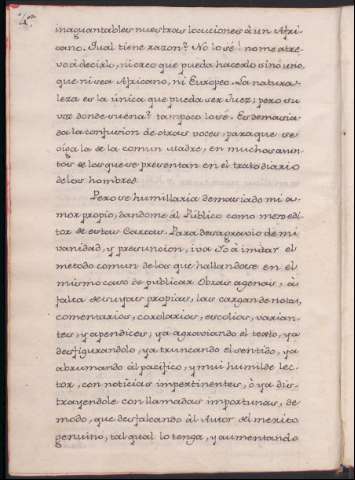 inaguantables nuestras locuciones à un Afri-
cano. Qual tiene razon? No lo sé! no me atre-
vo à decirlo, ni creo que pueda hacerlo sinó uno,
que ni sea Africano, ni Europeo. La natura-
leza es la única que pueda ser Juez; pero su
voz donde suena? tampoco lo sé. Es demasia-
da la confusion de otras voces, para que se
oiga la de la comun Madre, en muchos asun-
tos de los que se presentan en el trato diario
de los hombres.
Pero se humillaria demasiado mi a-
mor propio, dandome al Público como mero edi-
tor de estas Cartas. Para desagravio de mi
vanidad, y presuncion, iva Yo à imitar el
metodo comun de los que hallandose en el
mismo caso de publicar Obras agenas, à
falta de suyas propias, las cargan de notas,
comentarios, corolarios, escolios, varian-
tes, y apendices; ya agraviando el texto, ya
desfigurandolo, ya truncando el sentido, ya
abrumando al pacifico, y mui humilde lec-
tor, con noticias impertinentes, ò ya dis-
trayendole con llamadas importunas, de
modo, que desfalcando àl Autor del merito
genuino, tal qual lo tenga, y aumentando